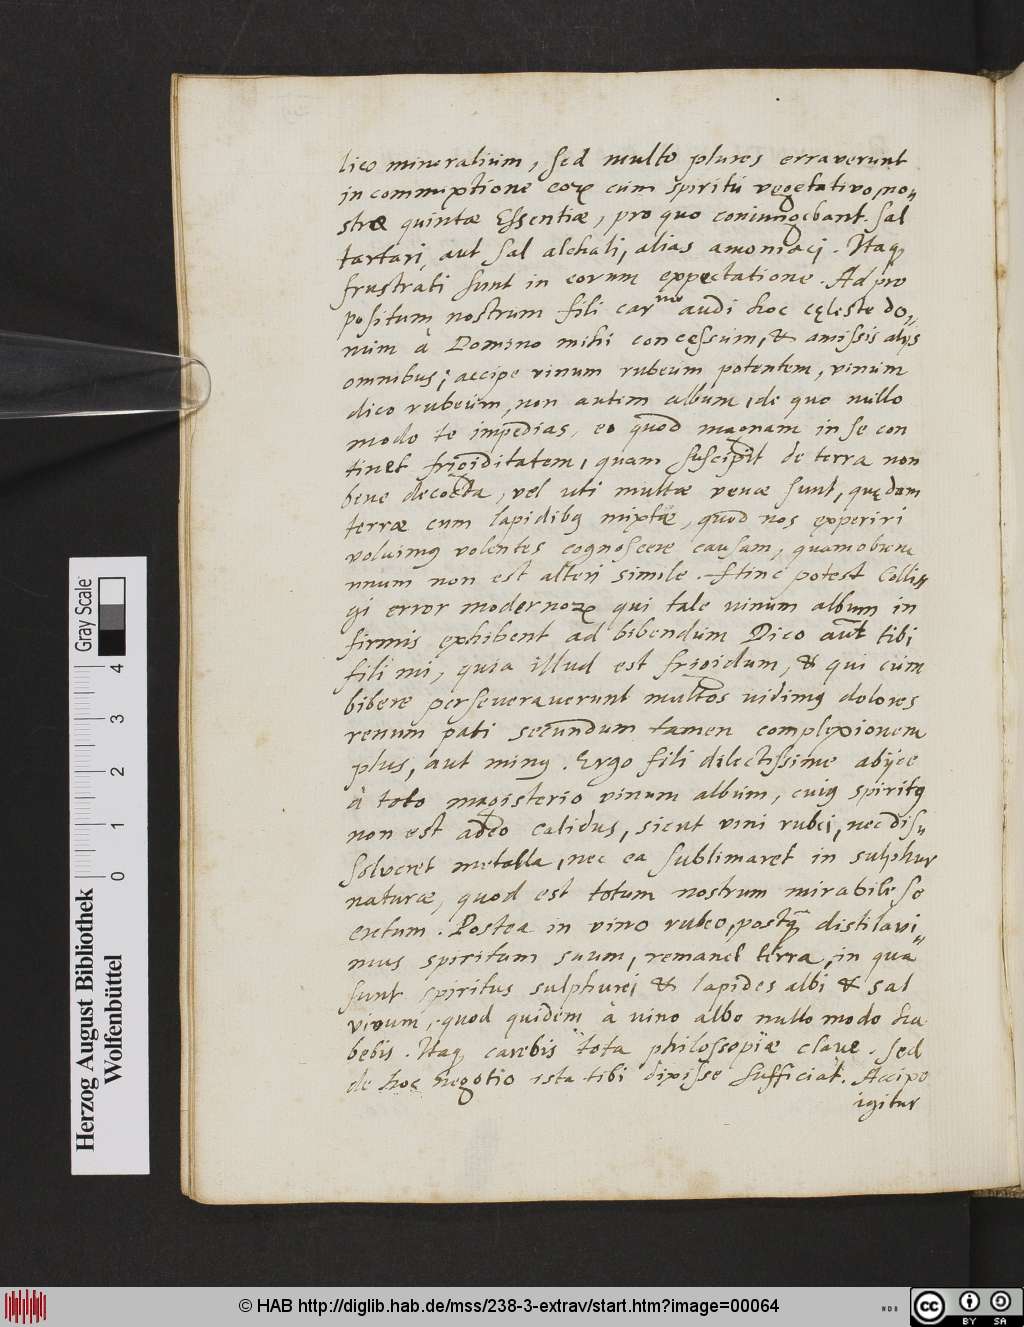 lico mineralium, sed multo plures erraverunt
in commixtione eoꝝ cum spiritu vegetativo no„
stræ quintæ Essentiæ, pro quo coniungebant sal
tartari, aut sal alchali, alias amoniaci. Itaqꝫ
frustrati sunt in eorum expectatione. Ad pro
positum nostrum fili carᵐᵒ audi hoc cęleste do„
num à Domino mihi concęssum, & amissis alijs
omnibus; accipe vinum rubeum potentem, vinum
dico rubeum, non autem album, de quo nullo
modo te impedias, eo quod magnam in se con
tinet frigiditatem, quam suscipit de terra non
bene decocta, vel uti multæ venæ sunt, quędam
terræ cum lapidibꝰ mixtæ, quod nos experiri
voluimꝰ volentes cognoscere causam, quamobrem
unum non est alteri simile. Hinc potest Colli„
gi error modernoꝝ qui tale vinum album in
firmis exhibent ad bibendum Dico aut̄ tibi
fili mi, quia illud est frigidum, & qui cum
bibere perseveraverunt multos vidimꝰ dolores
renum pati secundum tamen complexionem
plus, aut minꝰ. Ergo fili dilectissime abijce
à toto magisterio vinum album, cuiꝰ spiritꝰ
non est adeo calidus, sicut vini rubei, nec dis„
solveret metalla, nec ea sublimaret in sulphur
naturæ, quod est totum nostrum mirabile se
cretum. Postea in vino rubeo, postqꝫ̄ distilavi„
mus spiritum suum, remanet terra, in qua
sunt spiritus sulphurei & lapides albi & sal
vivum, quod quidem à vino albo nullo modo ha
bebis. Itaqꝫ carebis tota philosopiæ clave. Sed
de hoc negotio ista tibi dixisse sufficiat. Accipe
igitur
Herzog August Bibliothek
Wolfenbüttel
0 1 2 3 4
Gray Scale
© HAB http://diglib.hab.de/mss/238-3-extrav/start.htm?image=00064
cc BY SA